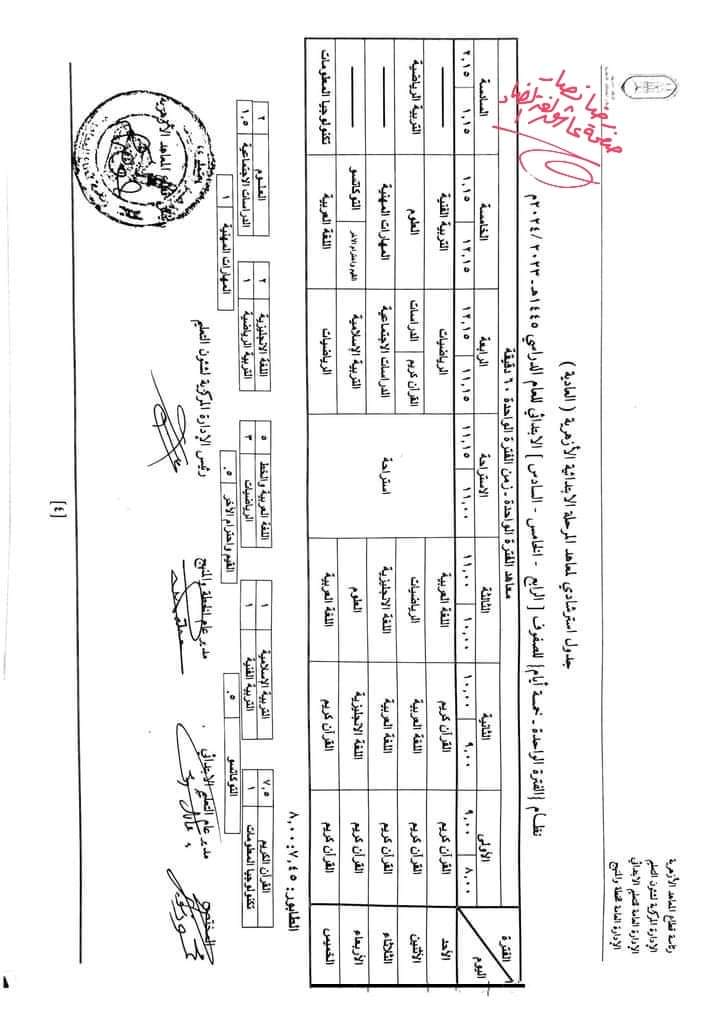 رئاسة قطاع المعاهد الأزهرية
الإدارة المركزية لشئون التعليم
الإدارة العامة للتعليم الابتدائي
الإدارة العامة للخطة والمنهج
جدول استرشادي لمعاهد المرحلة الابتدائية الأزهرية ( العادية )
نظام [ الفترة الواحدة ـ خمسة أيام] للصفوف [ الرابع - الخامس - السادس ] الابتدائي للعام الدراسي ١٤٤٥هـ - ٢٠٢٣ /٢٠٢٤م
معاهد الفترة الواحدة ـ زمن الفترة الواحدة ٦٠ دقيقة
الفترة الأولى الثانية الثالثة الاستراحة الرابعة الخامسة السادسة
اليوم ٨,٠٠ ٩,٠٠ ٩,٠٠ ١٠,٠٠ ١٠,٠٠ ١١,٠٠ ١١,٠٠ ١١,١٥ ١١,١٥ ١٢,١٥ ١٢,١٥ ١,١٥ ١,١٥ ٢,١٥
الأحد القرآن كريم القرآن كريم اللغة العربية استراحة الرياضيات التربية الفنية ——
الأثنين القرآن كريم اللغة العربية الرياضيات القرآن كريم الدراسات العلوم التربية الرياضية
الثلاثاء القرآن كريم اللغة العربية اللغة الانجليزية الدراسات الاجتماعية المهارات المهنية ——
الأربعاء القرآن كريم اللغة الانجليزية العلوم التربية الإسلامية التوكاتسو القيم واحترام الآخر ——
الخميس القرآن كريم القرآن كريم اللغة العربية الرياضيات اللغة العربية تكنولوجيا المعلومات
الطابور: ٧,٤٥ : ٨,٠٠
القرآن الكريم ٧,٥ التربية الإسلامية ١ اللغة العربية والخط ٥ اللغة الانجليزية ٢ العلوم ٢
تكنولوجيا المعلومات ١ التربية الفنية ١ الرياضيات ٣ التربية الرياضية ١ الدراسات الاجتماعية ١,٥
التوكاتسو ٥. القيم واحترام الآخر ٥. المهارات المهنية ١
المختص مدير عام التعليم الابتدائي مدير عام الخطة والمنهج رئيس الإدارة المركزية لشئون التعليم
[٤]